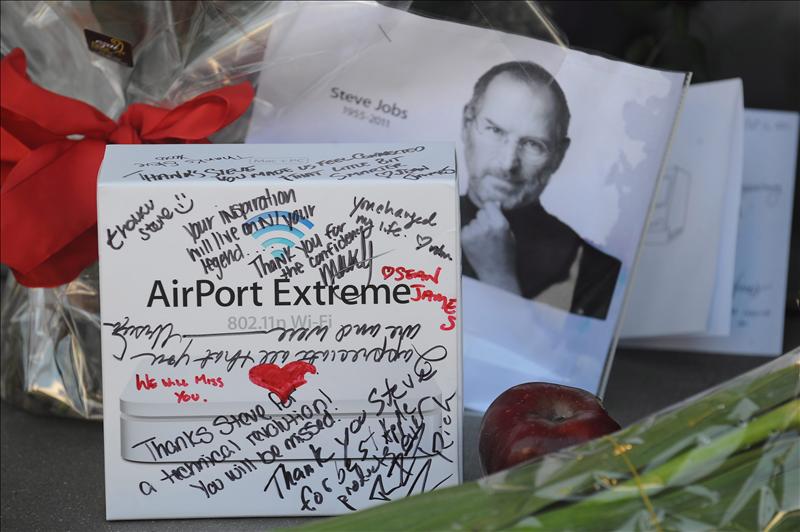 Steve Jobs
1955-2011
THANKS STEVE
YOU MADE US FEEL CONNECTED
THAT LITTLE BIT
thank u
steve
Your inspiration
will live on in/your
legend....
Thank you for
the confidence
you changed
my life.
SEAN
JAMES
AirPort Extreme
802.11n Wi-Fi
I appreciate all that you
are and were
We Will Miss
You.
Thanks Steve for
a technical revolution!
You will be missed.
Thank you Steve
for best
products
Rich